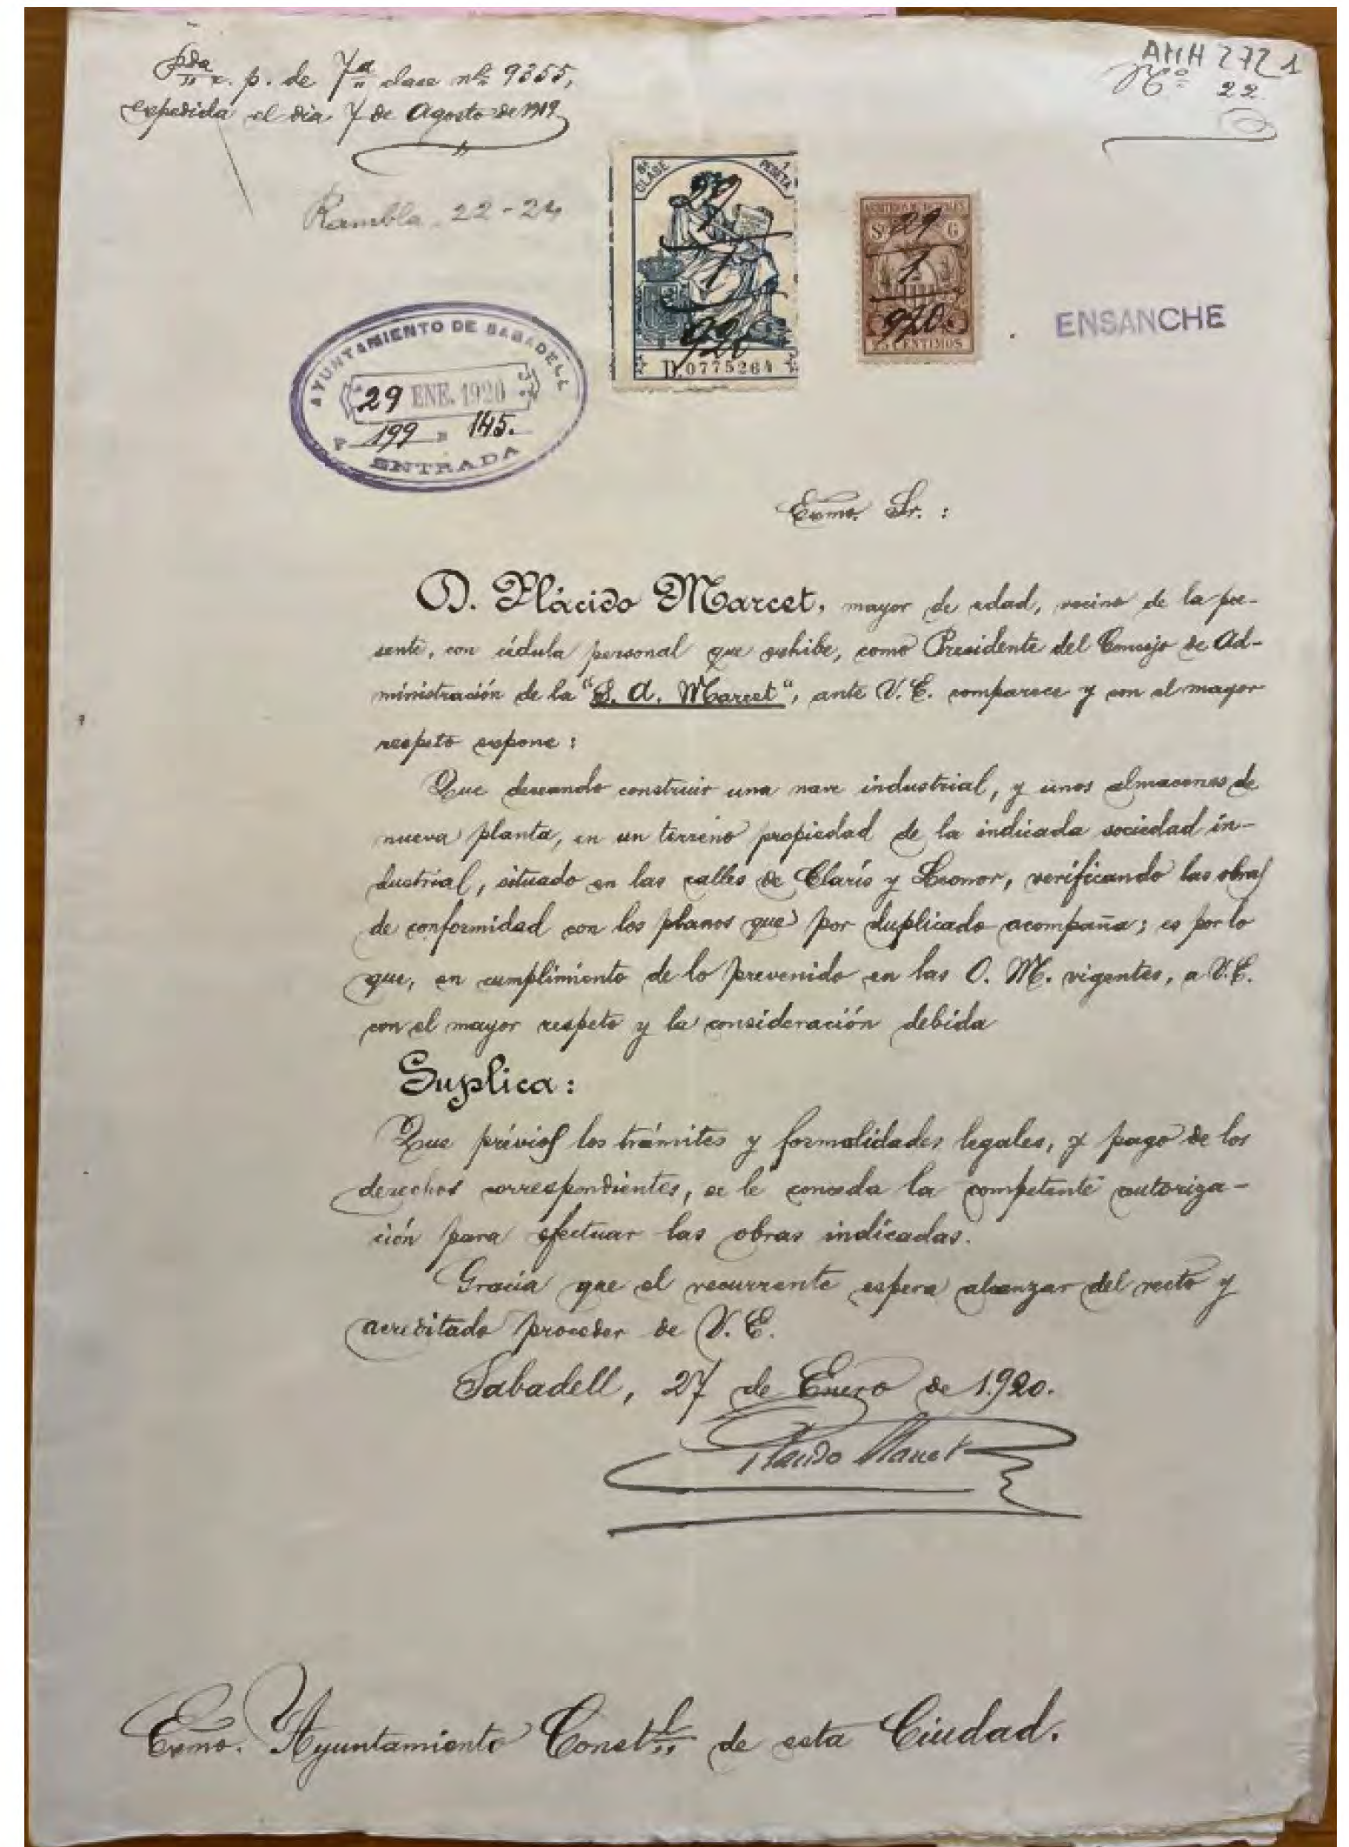 AMH 272 1
Nº 22
p. de 7ª clase nº 9355,
expedida el día 7 de Agosto de 1919
Rambla 22-24
8ª CLASE 1 PESETA
29
1
920
D.0775264
ARBITRIOS MUNICIPALES
S G
29
1
920.
25 CENTIMOS
ENSANCHE
AYUNTAMIENTO DE SABADELL
29 ENE. 1920
199 145.
ENTRADA
Exmo. Sr. :
D. Plácido Marcet, mayor de edad, vecino de la pre-
sente, con cédula personal que exhibe, como Presidente del Consejo de Ad-
ministración de la "S. A. Marcet", ante V. E. comparece y con el mayor
respeto expone :
Que deseando construir una nave industrial, y unos almacenes de
nueva planta, en un terreno propiedad de la indicada sociedad in-
dustrial, situado en las calles de Claris y Leonor, verificando las obras
de conformidad con los planos que por duplicado acompaña; es por lo
que, en cumplimiento de lo prevenido en las O. M. vigentes, a V. E.
con el mayor respeto y la consideración debida
Suplica :
Que prévios los trámites y formalidades legales, y pago de los
derechos correspondientes, se le conceda la competente autoriza-
ción para efectuar las obras indicadas.
Gracia que el recurrente espera alcanzar del recto y
acreditado proceder de V. E.
Sabadell, 27 de Enero de 1.920.
Placido Marcet
Exmo. Ayuntamiento Constl. de esta Ciudad.